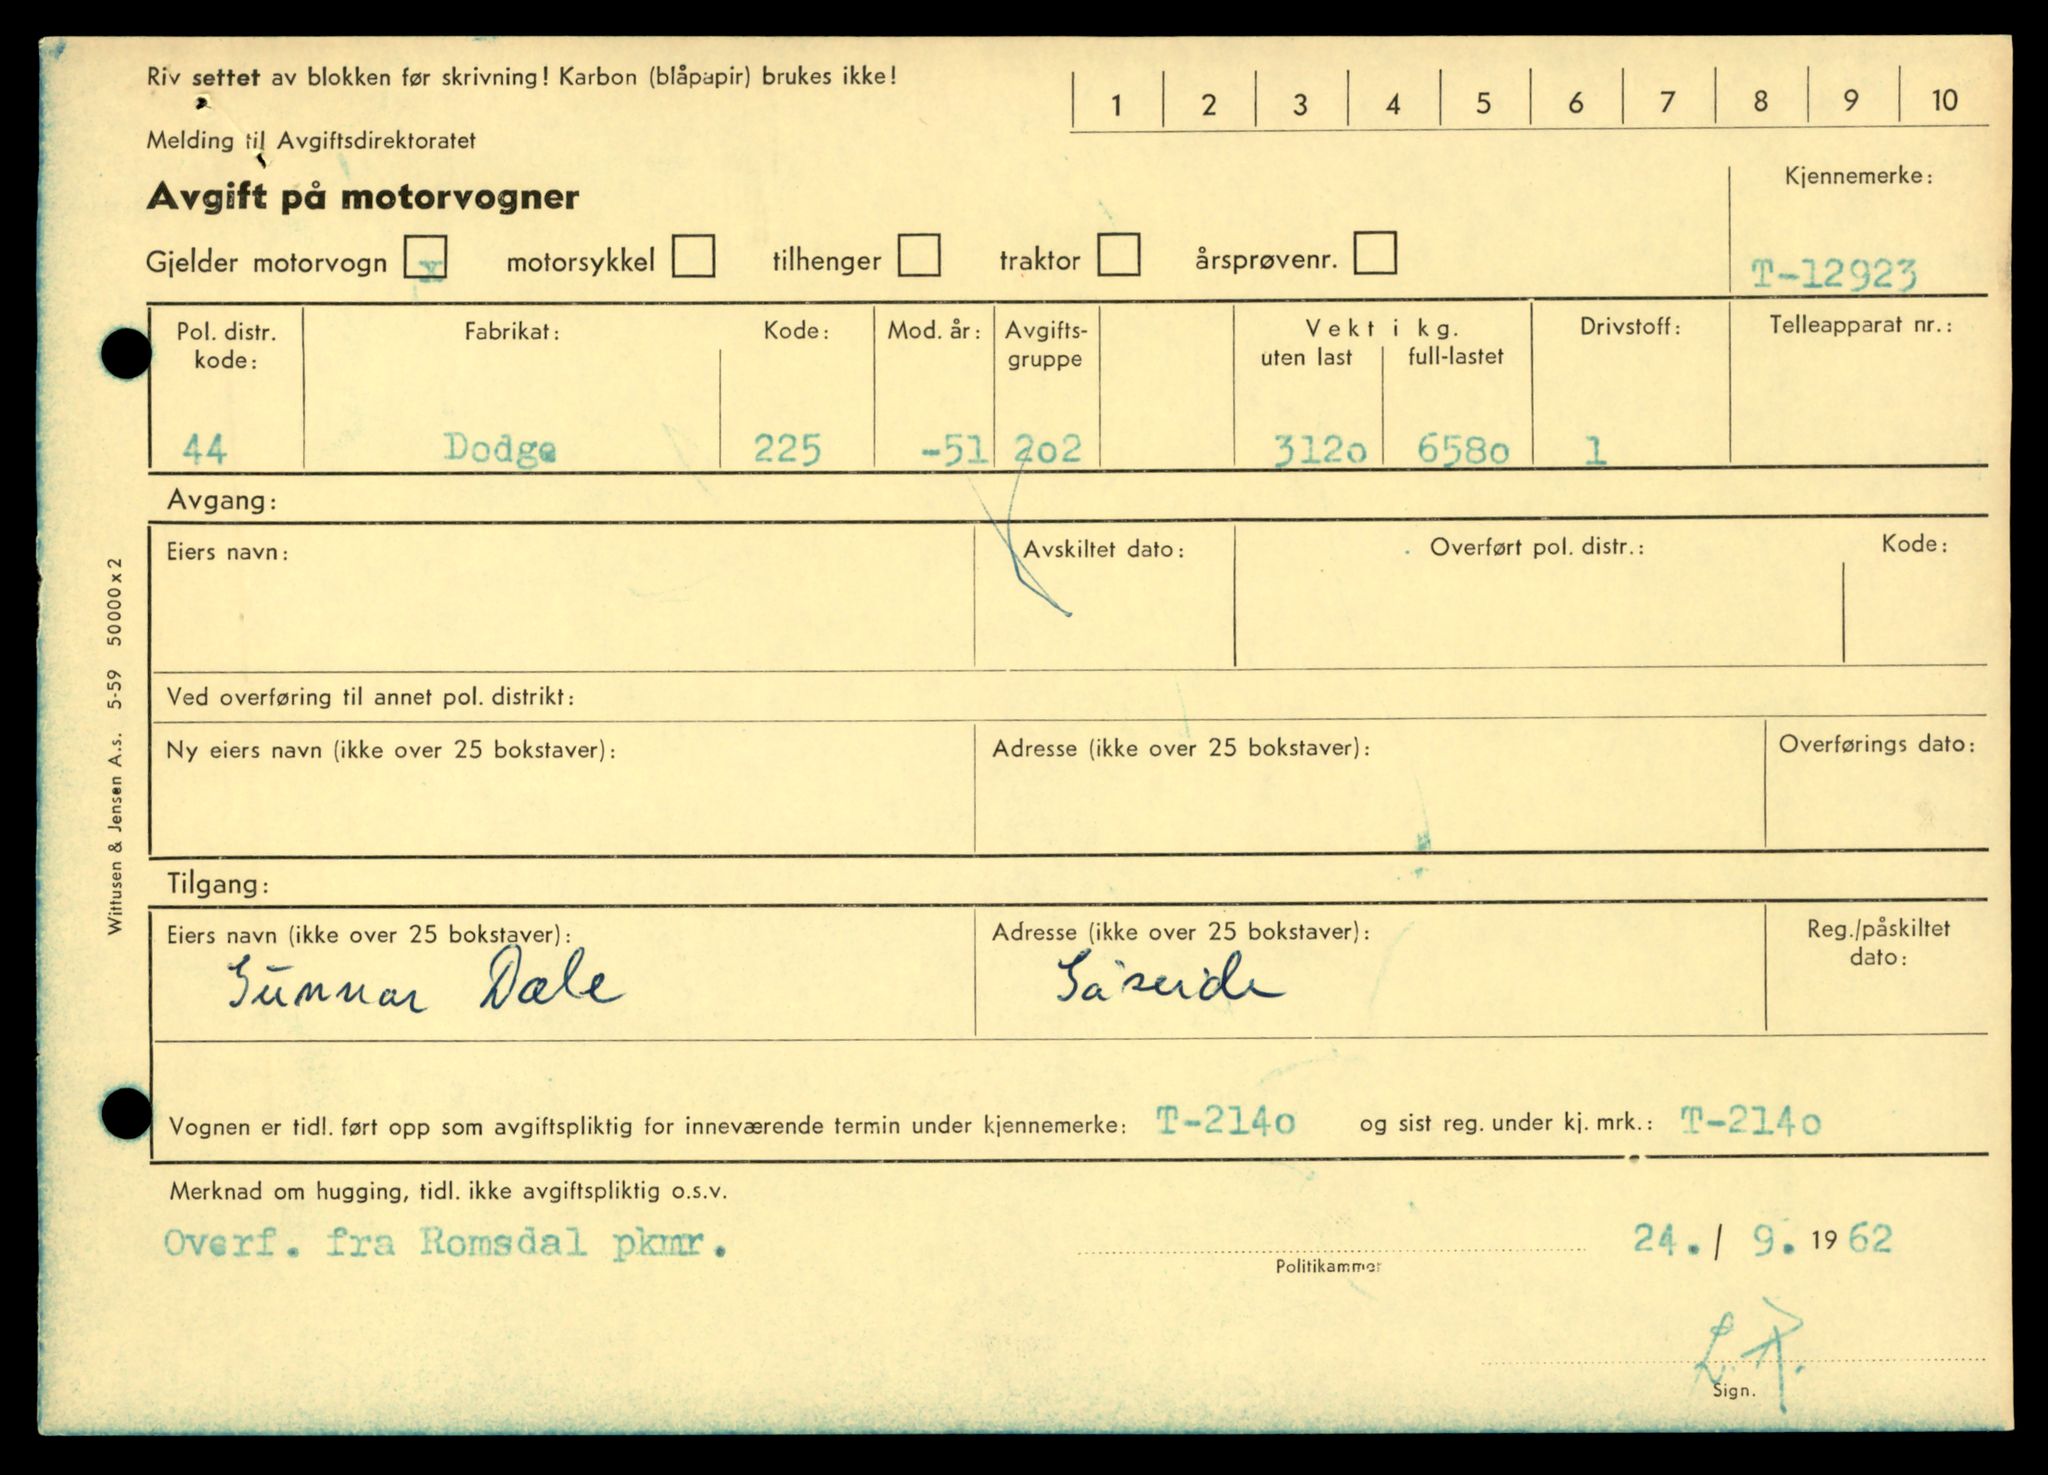 Riv settet av blokken før skrivning! Karbon (blåpapir) brukes ikke!
1 2 3 4 5 6 7 8 9 10
Melding til Avgiftsdirektoratet
Avgift på motorvogner
Kjennemerke:
Gjelder motorvogn x motorsykkel tilhenger traktor årsprøvenr.
T-12923
Pol. distr. kode: Fabrikat: Kode: Mod. år: Avgifts-gruppe Vekt i kg. uten last full-lastet Drivstoff: Telleapparat nr.:
44 Dodge 225 -51 2o2 312o 658o 1
Avgang:
Eiers navn: Avskiltet dato: Overført pol. distr.: Kode:
Ved overføring til annet pol. distrikt:
Ny eiers navn (ikke over 25 bokstaver): Adresse (ikke over 25 bokstaver): Overførings dato:
Tilgang:
Eiers navn (ikke over 25 bokstaver): Adresse (ikke over 25 bokstaver): Reg./påskiltet dato:
Gunnar Dale Gåseide
Vognen er tidl. ført opp som avgiftspliktig for inneværende termin under kjennemerke: T-214o og sist reg. under kj. mrk.: T-214o
Merknad om hugging, tidl. ikke avgiftspliktig o.s.v.
Overf. fra Romsdal pkmr. 24. / 9. 1962
Politikammer
Sign.
Wittusen & Jensen A.s. 5-59 50000x2